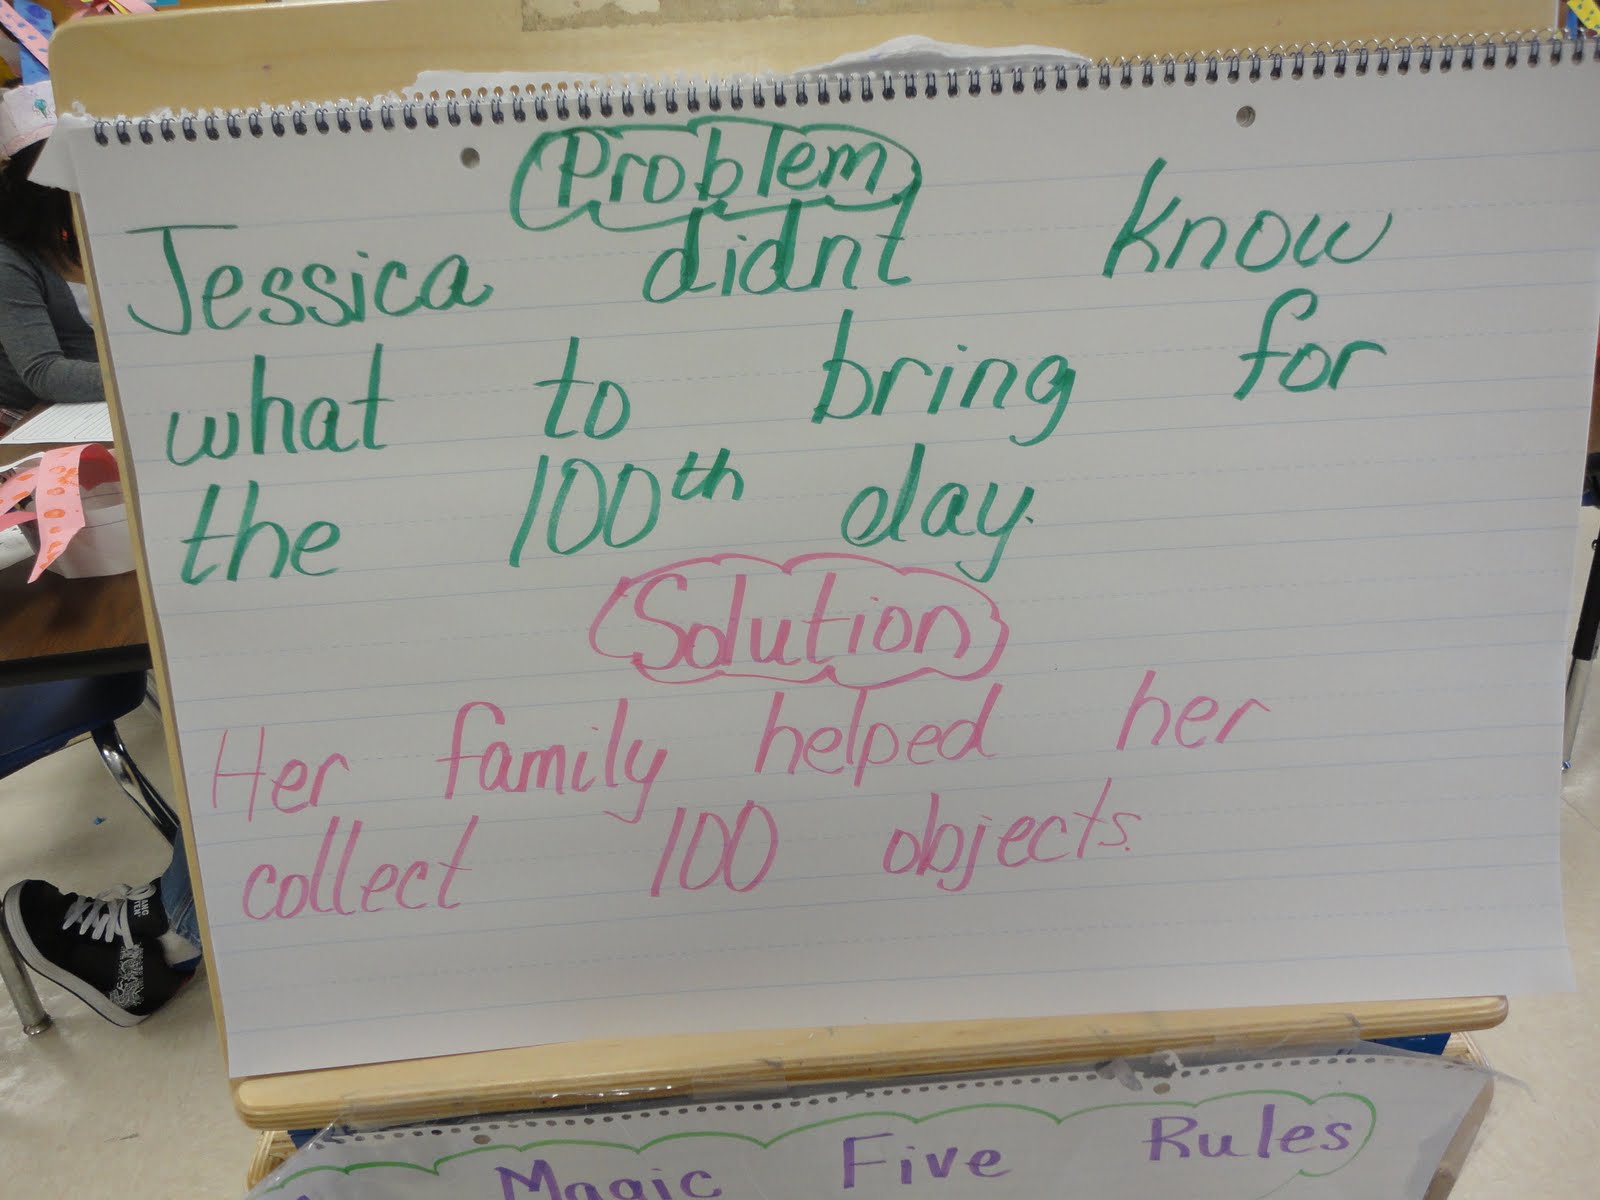 Problem
Jessica didnt know
what to bring for
the 100th day.
Solution
Her family helped her
collect 100 objects.
Magic Five Rules